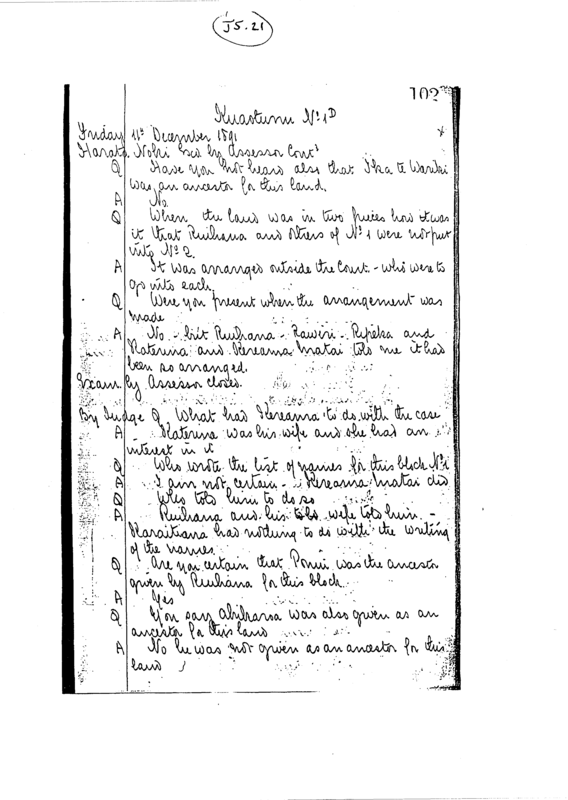 J5.21
102
Kuaotunu No 1D
Friday 11th December 1891
Harata Nohi Exd by Assessor Contd
Q Have you not heard also that Ika te Wariki
was an ancestor for this land.
A No
Q When the land was in two pieces how it was
it that Ruihana and others of No 1 were not put
into No 2.
A It was arranged outside the Court - who were to
go into each.
Q Were you present when the arrangement was
made
A No - but Ruihana - Rawiri - Ripeka and
Katerina and Kereama Matai told me it had
been so arranged.
Exam by Assessor closes.
By Judge Q What had Kereama to do with the case
A Katerina was his wife and she had an
interest in it
Q Who wrote the list of names for this block No 1
A I am not certain - Kereama Matai did
Q Who told him to do so
A Ruihana and his wife told him. -
Karaitiana had nothing to do with the writing
of the names.
Q Are you certain that Ponui was the ancestor
given by Ruihana for this block
A Yes
Q You say was also given as an
ancestor for this land
A No he was not given as an ancestor for this
land